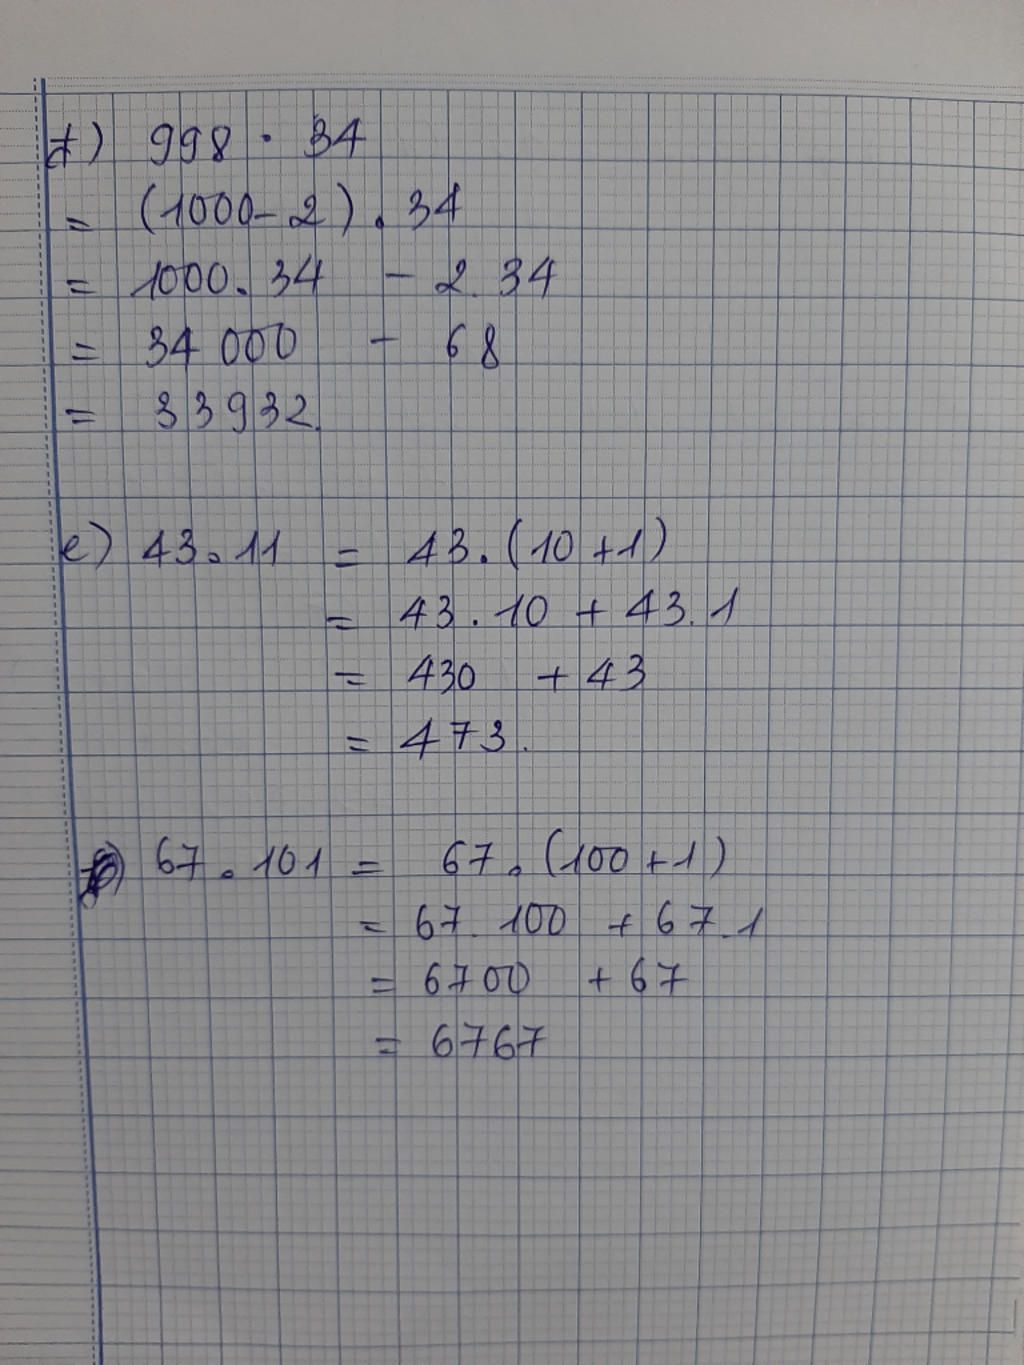 d) 998 . 34
= (1000 - 2) . 34
= 1000 . 34 - 2 . 34
= 34 000 - 68
= 33932.
e) 43 . 11 = 43 . (10 + 1)
= 43 . 10 + 43 . 1
= 430 + 43
= 473.
) 67 . 101 = 67 . (100 + 1)
= 67 . 100 + 67 . 1
= 6700 + 67
= 6767